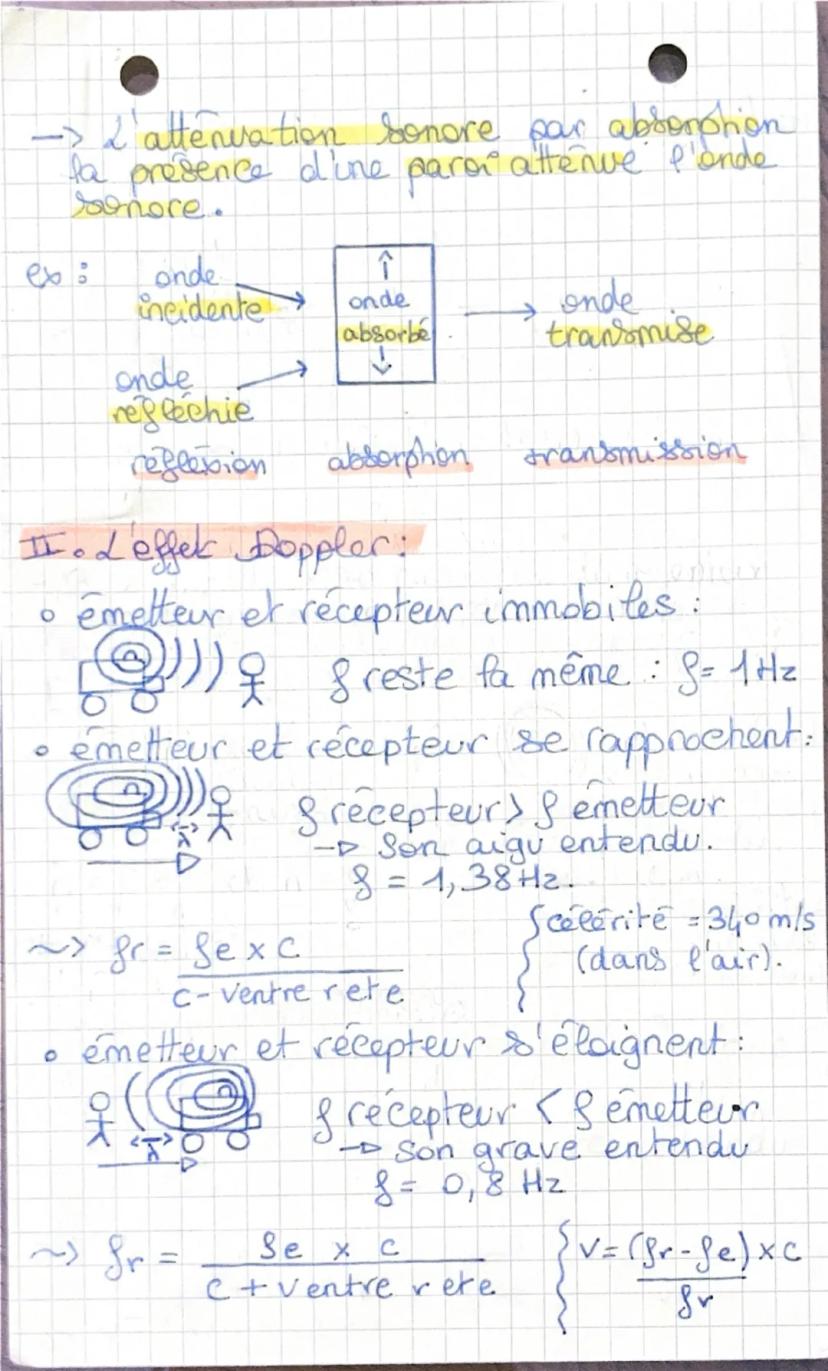 -> L'atténuation sonore par absorption
la présence d'une paroi atténue l'onde
sonore.
ex : onde incidente
onde absorbé
onde transmise
onde réfléchie
réflexion absorption transmission
II. L'effet Doppler :
o émetteur et récepteur immobiles :
f reste la même : f = 1 Hz
o émetteur et récepteur se rapprochent :
f récepteur > f émetteur
-> Son aigu entendu.
λ
f = 1,38 Hz.
~> fr = fe x c / c - v entre r et e
{ célérité = 340 m/s
(dans l'air).
o émetteur et récepteur s'éloignent :
f récepteur < f émetteur
-> son grave entendu
λ
f = 0,8 Hz
~> fr = fe x c / c + v entre r et e
{ v = (fr - fe) x c / fr